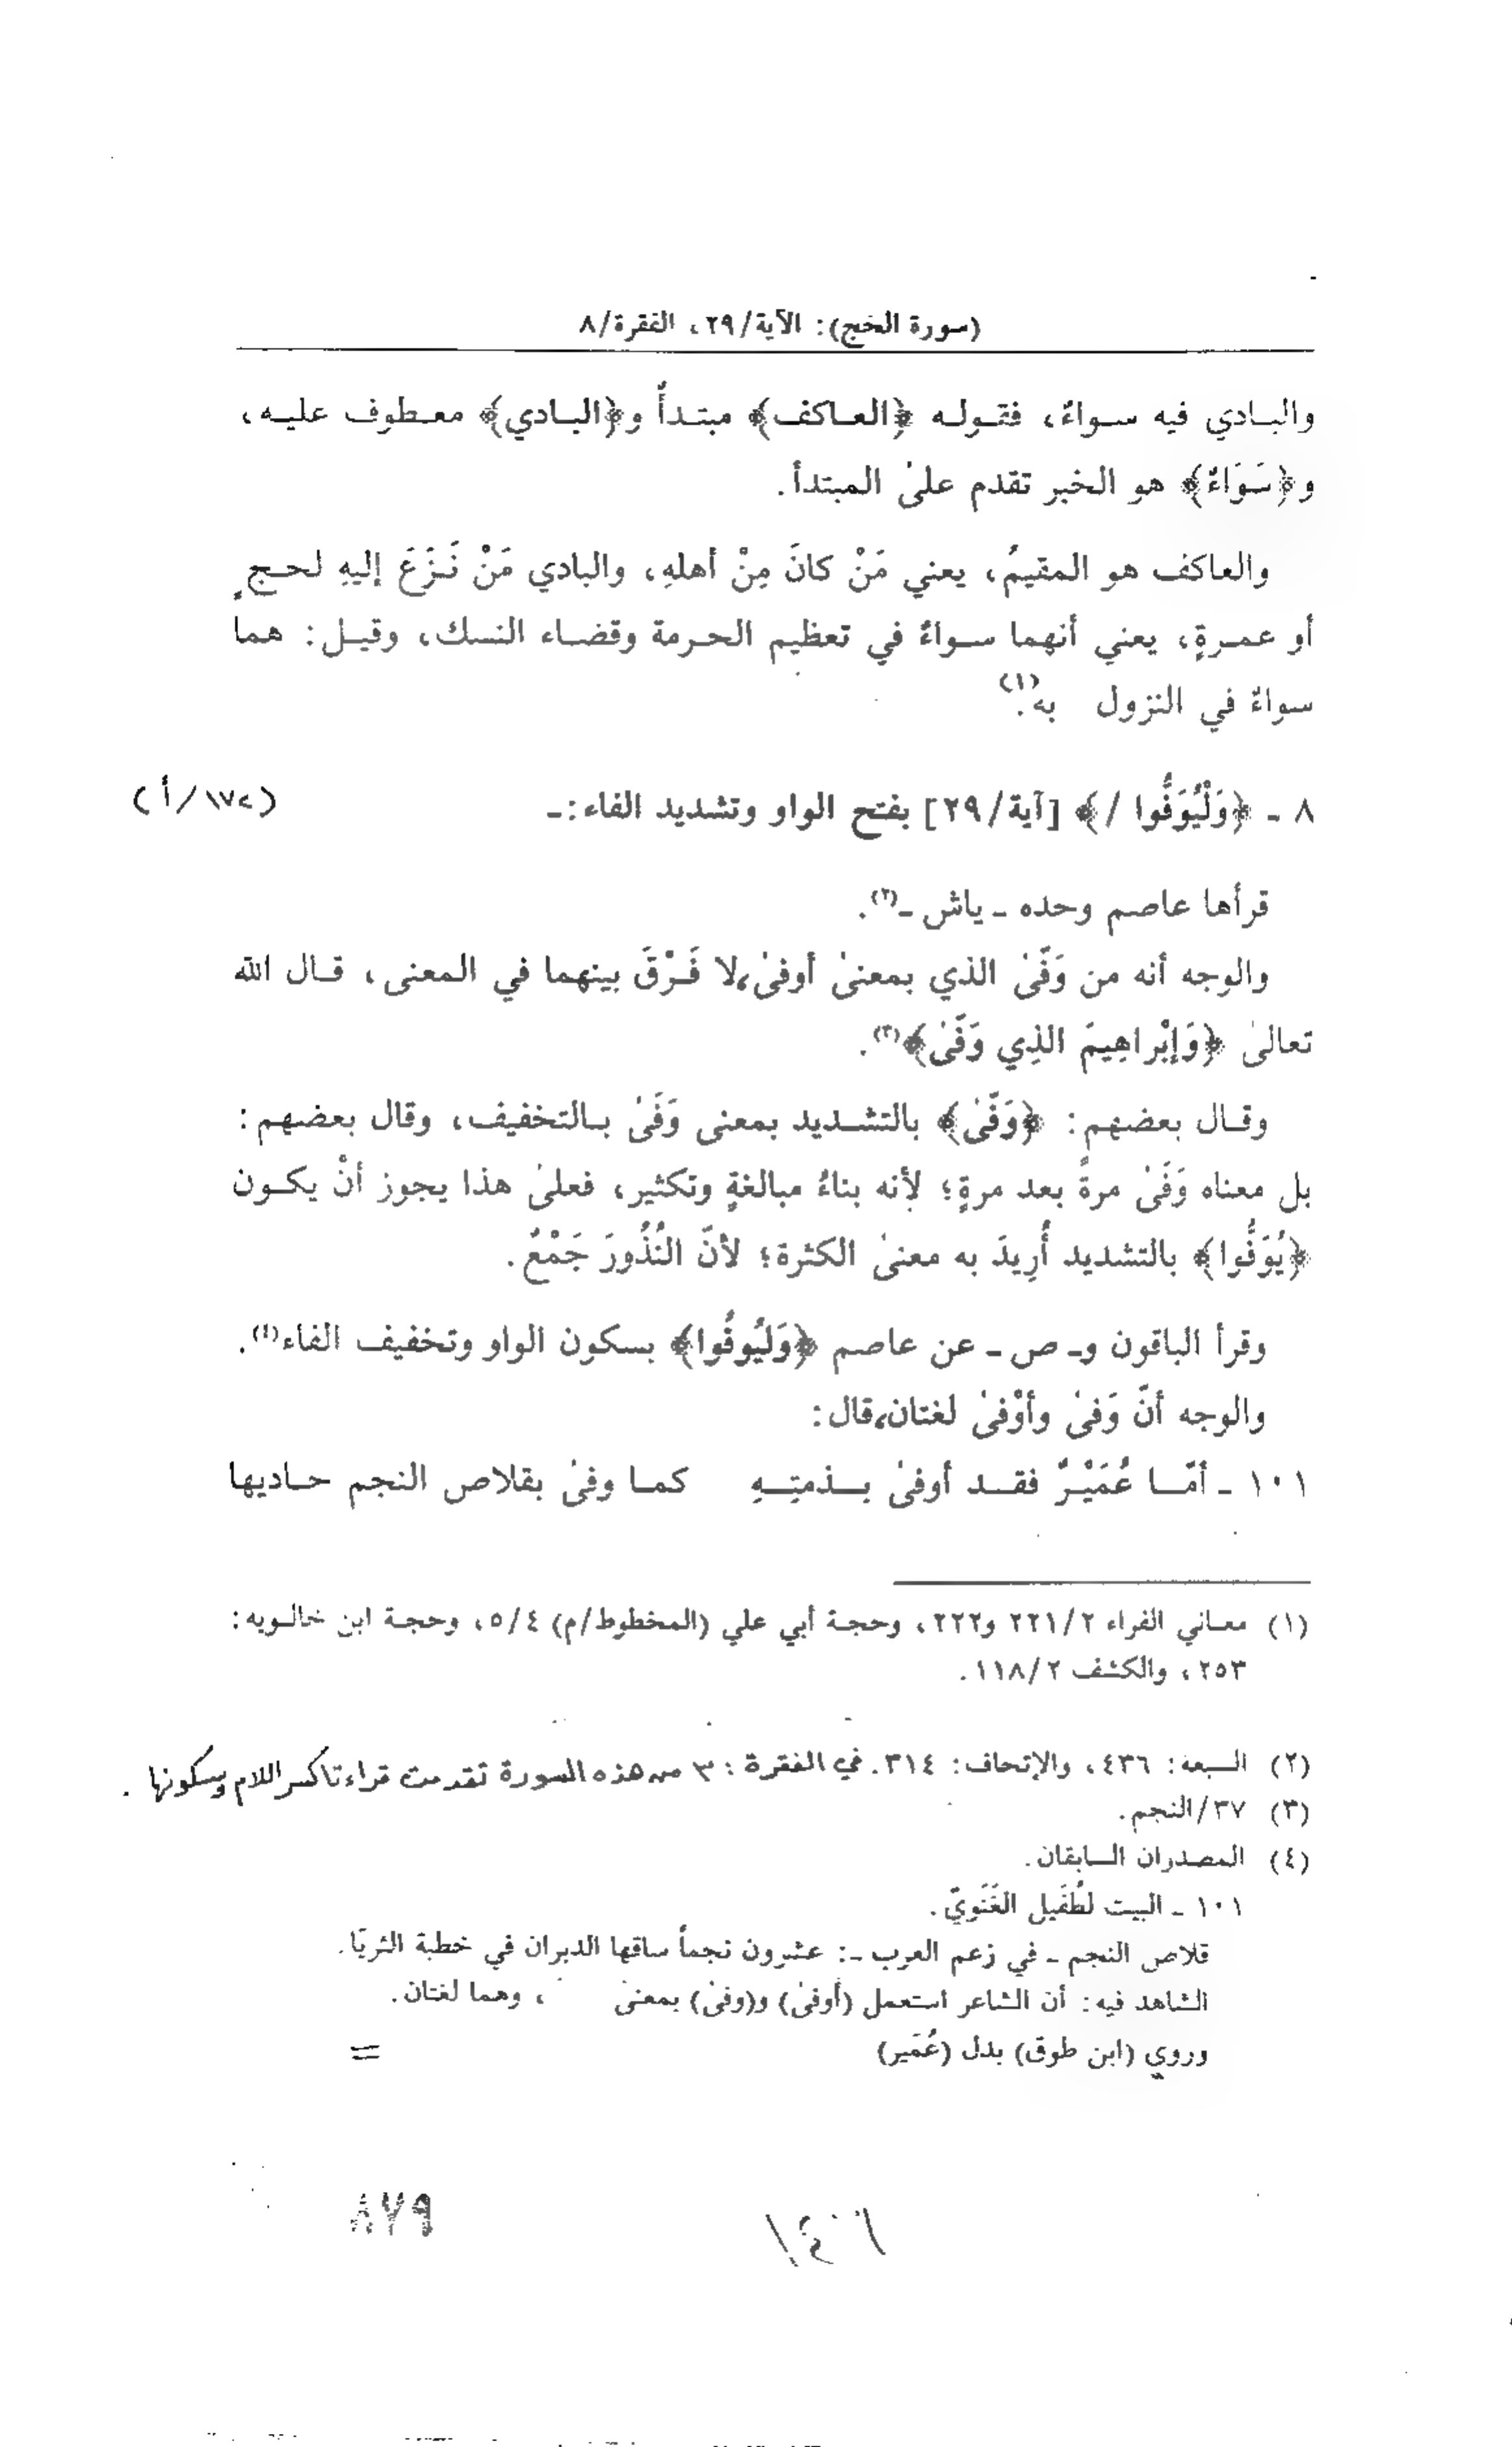 (سورة الحج): الآية/٢٩، الفقرة/٨
والبادي فيه سواءٌ، فقوله ﴿العاكف﴾ مبتدأٌ و﴿البادي﴾ معطوف عليه،
و﴿سَوَاءٌ﴾ هو الخبر تقدم علىٰ المبتدأ.
والعاكف هو المقيمُ، يعني مَنْ كانَ مِنْ أهلهِ، والبادي مَنْ نَزَعَ إليهِ لحجٍ
أو عمرةٍ، يعني أنهما سواءٌ في تعظيم الحرمة وقضاء النسك، وقيل: هما
سواءٌ في النزول به(١).
٨ ـ ﴿وَلْيُوَفُّوا /﴾ [آية/٢٩] بفتح الواو وتشديد الفاء:ـ (١٧٢/أ)
قرأها عاصم وحده ـ ياش ـ(٢).
والوجه أنه من وَفّىٰ الذي بمعنىٰ أوفىٰ، لا فَرْقَ بينهما في المعنى، قال الله
تعالىٰ ﴿وَإبْراهِيمَ الذِي وَفّىٰ﴾(٣).
وقال بعضهم: ﴿وَفّىٰ﴾ بالتشديد بمعنى وَفَىٰ بالتخفيف، وقال بعضهم:
بل معناه وَفَىٰ مرةً بعد مرةٍ؛ لأنه بناءُ مبالغةٍ وتكثير، فعلىٰ هذا يجوز أنْ يكون
﴿يُوَفُّوا﴾ بالتشديد أُرِيدَ به معنىٰ الكثرة؛ لأنّ النُذُورَ جَمْعٌ.
وقرأ الباقون وـ ص ـ عن عاصم ﴿وَليُوفُوا﴾ بسكون الواو وتخفيف الفاء(٤).
والوجه أنّ وَفىٰ وأوْفىٰ لغتان، قال:
١٠١ ـ أمّا عُمَيْرٌ فقد أوفىٰ بذمتِهِ كما وفىٰ بقلاص النجم حاديها
(١) معاني الفراء ٢٢١/٢ و٢٢٢، وحجة أبي علي (المخطوط/م) ٥/٤، وحجة ابن خالويه:
٢٥٣، والكشف ١١٨/٢.
(٢) السبعة: ٤٣٦، والإتحاف: ٣١٤. في الفقرة: ٣ من هذه السورة تقدمت قراءتا كسر اللام وسكونها.
(٣) ٣٧/النجم.
(٤) المصدران السابقان.
١٠١ ـ البيت لطُفَيل الغَنَويّ.
قلاص النجم ـ في زعم العرب ـ: عشرون نجماً ساقها الدبران في خطبة الثريّا.
الشاهد فيه: أن الشاعر استعمل (أوفىٰ) و(وفىٰ) بمعنىٰ ، وهما لغتان.
وروي (ابن طوق) بدل (عُمَير) =
٨٧٩